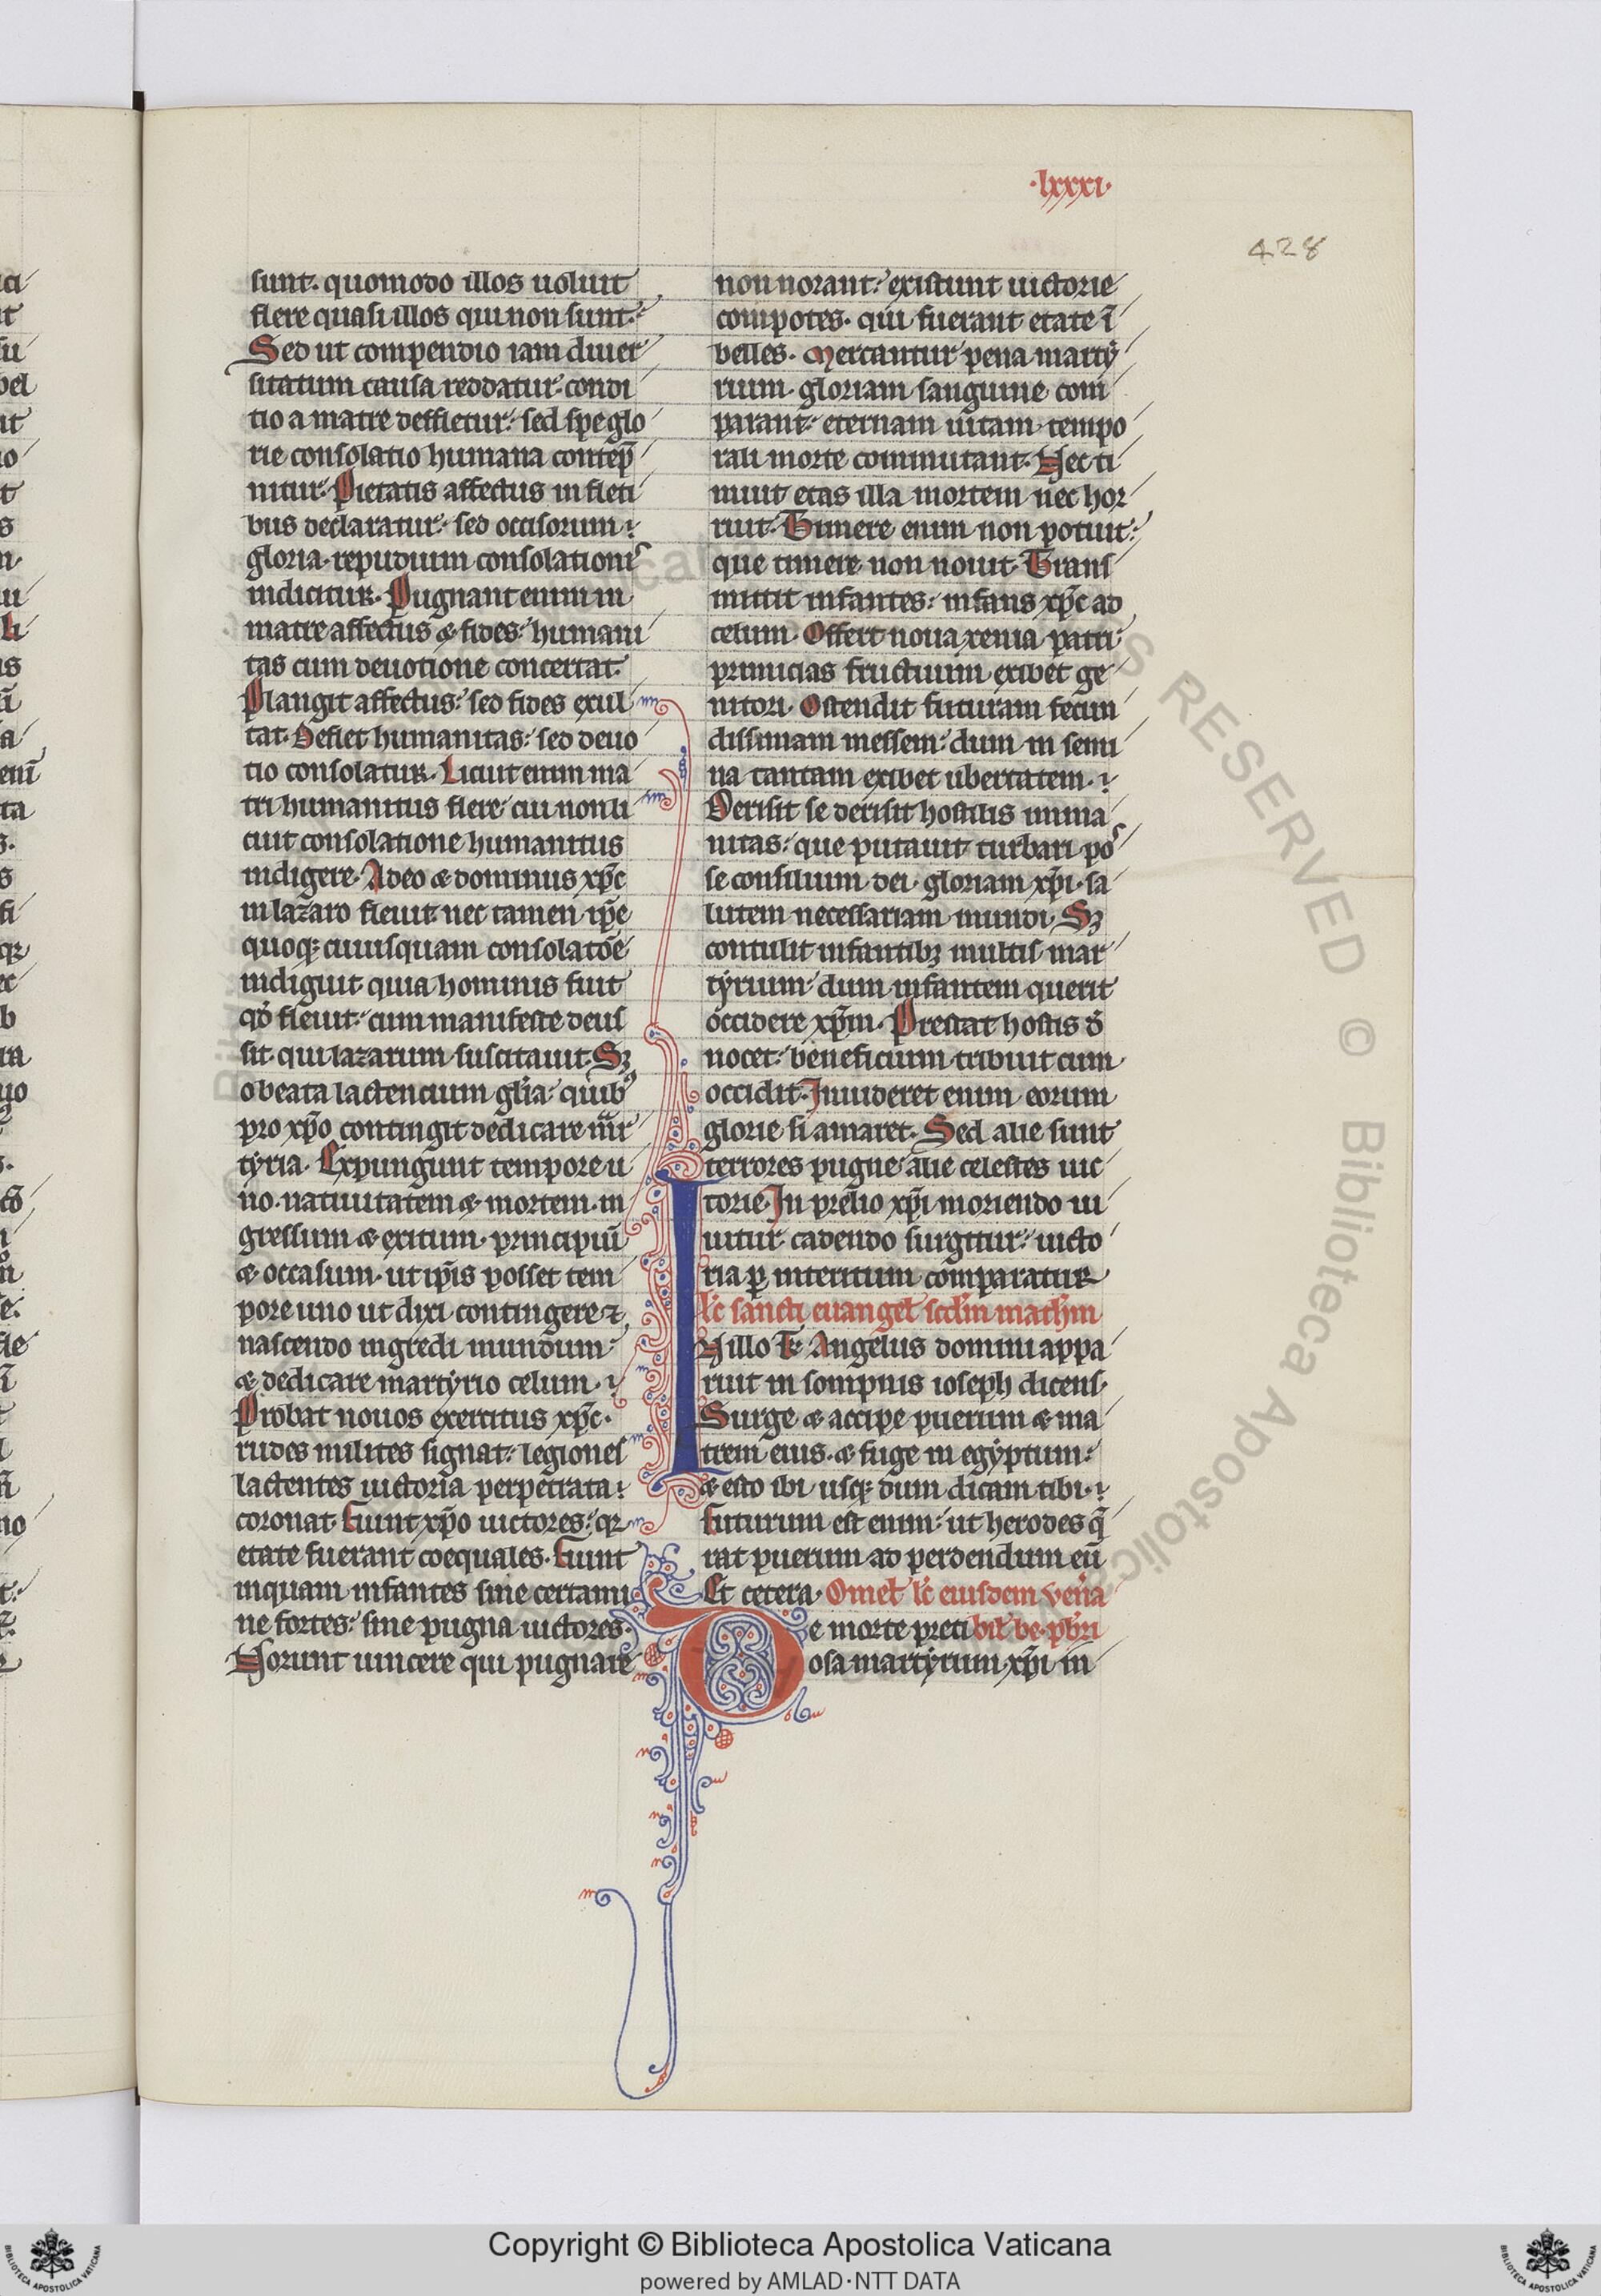 ·lxxxi·
428
sunt. quomodo illos uoluit
flere quasi illos qui non sunt.
Sed ut compendio iam diuer
sitatum causa reddatur. condi
tio a matre deffletur. sed spe glo
rie consolatio humana contep̄
nitur. Pietatis affectus in fleti
bus declaratur. sed occisorum
gloria. repudium consolationis
indicitur. Pugnant enim in
matre affectus & fides. humani
tas cum deuotione concertat.
Plangit affectus. sed fides exul
tat. Deflet humanitas. sed deuo
tio consolatur. Licuit enim ma
tri humanitus flere cui non li
cuit consolatione humanitus
indigere. Adeo & dominus xp̄c
in lazaro fleuit nec tamen ip̄e
quoq; cuiusquam consolatōe
indiguit quia hominis fuit
qd̓ fleuit. cum manifeste deus
sit qui lazarum suscitauit. Sꝫ
o beata lactencium gl̄ia. quibꝰ
pro xp̄o contingit dedicare mar
tyria. Expungunt tempore u
no. natiuitatem & mortem. in
gressum & exitum. principiū
& occasum. ut ip̄is posset tem
pore uno ut dixi contingere &
nascendo ingredi mundum
& dedicare martyrio celum.
Probat nouos exercitus xp̄c.
rudes milites signat. legiones
lactentes uictoria perpetrata
coronat. Fiunt xp̄o uictores. qr
etate fuerant coequales. Fiunt
inquam infantes sine certami
ne fortes. sine pugna uictores.
Norunt uincere qui pugnare
non norant. existunt uictorie
compotes. qui fuerant etate ī
belles. Mercantur pena marty
rium. gloriam sanguine com
parant. eternam uitam tempo
rali morte commutant. Nec ti
muit etas illa mortem nec hor
ruit. Timere enim non potuit.
que timere non nouit. Trans
mittit infantes. infans xp̄c ad
celum. Offert noua xenia patri
primicias fructuum exibet ge
nitori. Ostendit futuram fecun
dissimam messem. dum in semi
na tantam exibet ubertatem.
Derisit se derisit hostilis imma
nitas. que putauit turbari pos
se consilium dei. gloriam xp̄i. sa
lutem necessariam mundi. Sꝫ
contulit infantibꝫ multis mar
tyrium dum infantem querit
occidere xp̄m. Prestat hostis d̄
nocet. beneficium tribuit cum
occidit. Inuideret enim eorum
glorie si amaret. Sed alie sunt
terrores pugne alie celestes uic
torie. In prelio xp̄i moriendo ui
uitur cadendo surgitur. uicto
ria ꝑ interitum comparatur
lc̄ sancti euangel̄ scd̄m math̄m
IN illo t̄r Angelus domini appa
ruit in sompnis ioseph dicens.
Surge & accipe puerum & ma
trem eius. & fuge in egyptum.
& esto ibi usq; dum dicam tibi.
Futurum est enim. ut herodes q̄
rat puerum ad perdendum eū
Et cetera. Omel̄ lc̄ eiusdem ven̄a
De morte preti bil̄ be. pb̄ri
osa martyrum xp̄i in
Copyright © Biblioteca Apostolica Vaticana
powered by AMLAD·NTT DATA